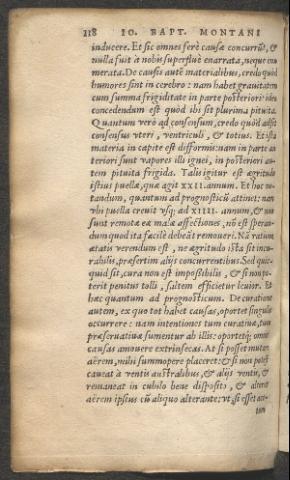 118 IO. BAPT. MONTANI
inducere. Et sic omnes ferè causæ concurrũt, &
nulla fuit à nobis superfluè enarrata, neque enu
merata. De causis autẽ materialibus, credo quòd
humores sint in cerebro: nam habet grauitatem
cum summa frigiditate in parte posteriori: ideo
concedendum est quòd ibi sit plurima pituita.
Quantum verò ad consensum, credo quòd adsit
consensus vteri, ventriculi, & totius. Et ista
materia in capite est difformis: nam in parte an
teriori sunt vapores illi ignei, in posteriori au-
tem pituita frigida. Talis igitur est ægritudo
istius puellæ, quæ agit XXII. annum. Et hoc no-
tandum, quantum ad prognosticũ attinet: nam
vbi puella creuit vsq; ad XIIII. annum, & non
sunt remotæ eæ malæ affectiones, nõ est speran-
dum quod ita facilè debeãt remoueri. Nã ratione
ætatis verendum est, ne ægritudo ista sit incu-
rabilis, præsertim alijs concurrentibus. Sed quic-
quid sit, cura non est impoßibilis, & si non po-
terit penitus tolli, saltem efficietur leuior. Et
hæc quantum ad prognosticum. De curatione
autem, ex quo tot habet causas, oportet singulis
occurrere: nam intentiones tum curatiuæ, tum
præseruatiuæ sumentur ab illis: oportetq; omnes
causas amouere extrinsecas. At si posset mutare
aërem, mihi summopere placeret: & si non potest
caueat à ventis australibus, & alijs ventis, &
remaneat in cubilo bene disposito, & alteret
aërem ipsius cũ aliquo alterante: vt, si esset